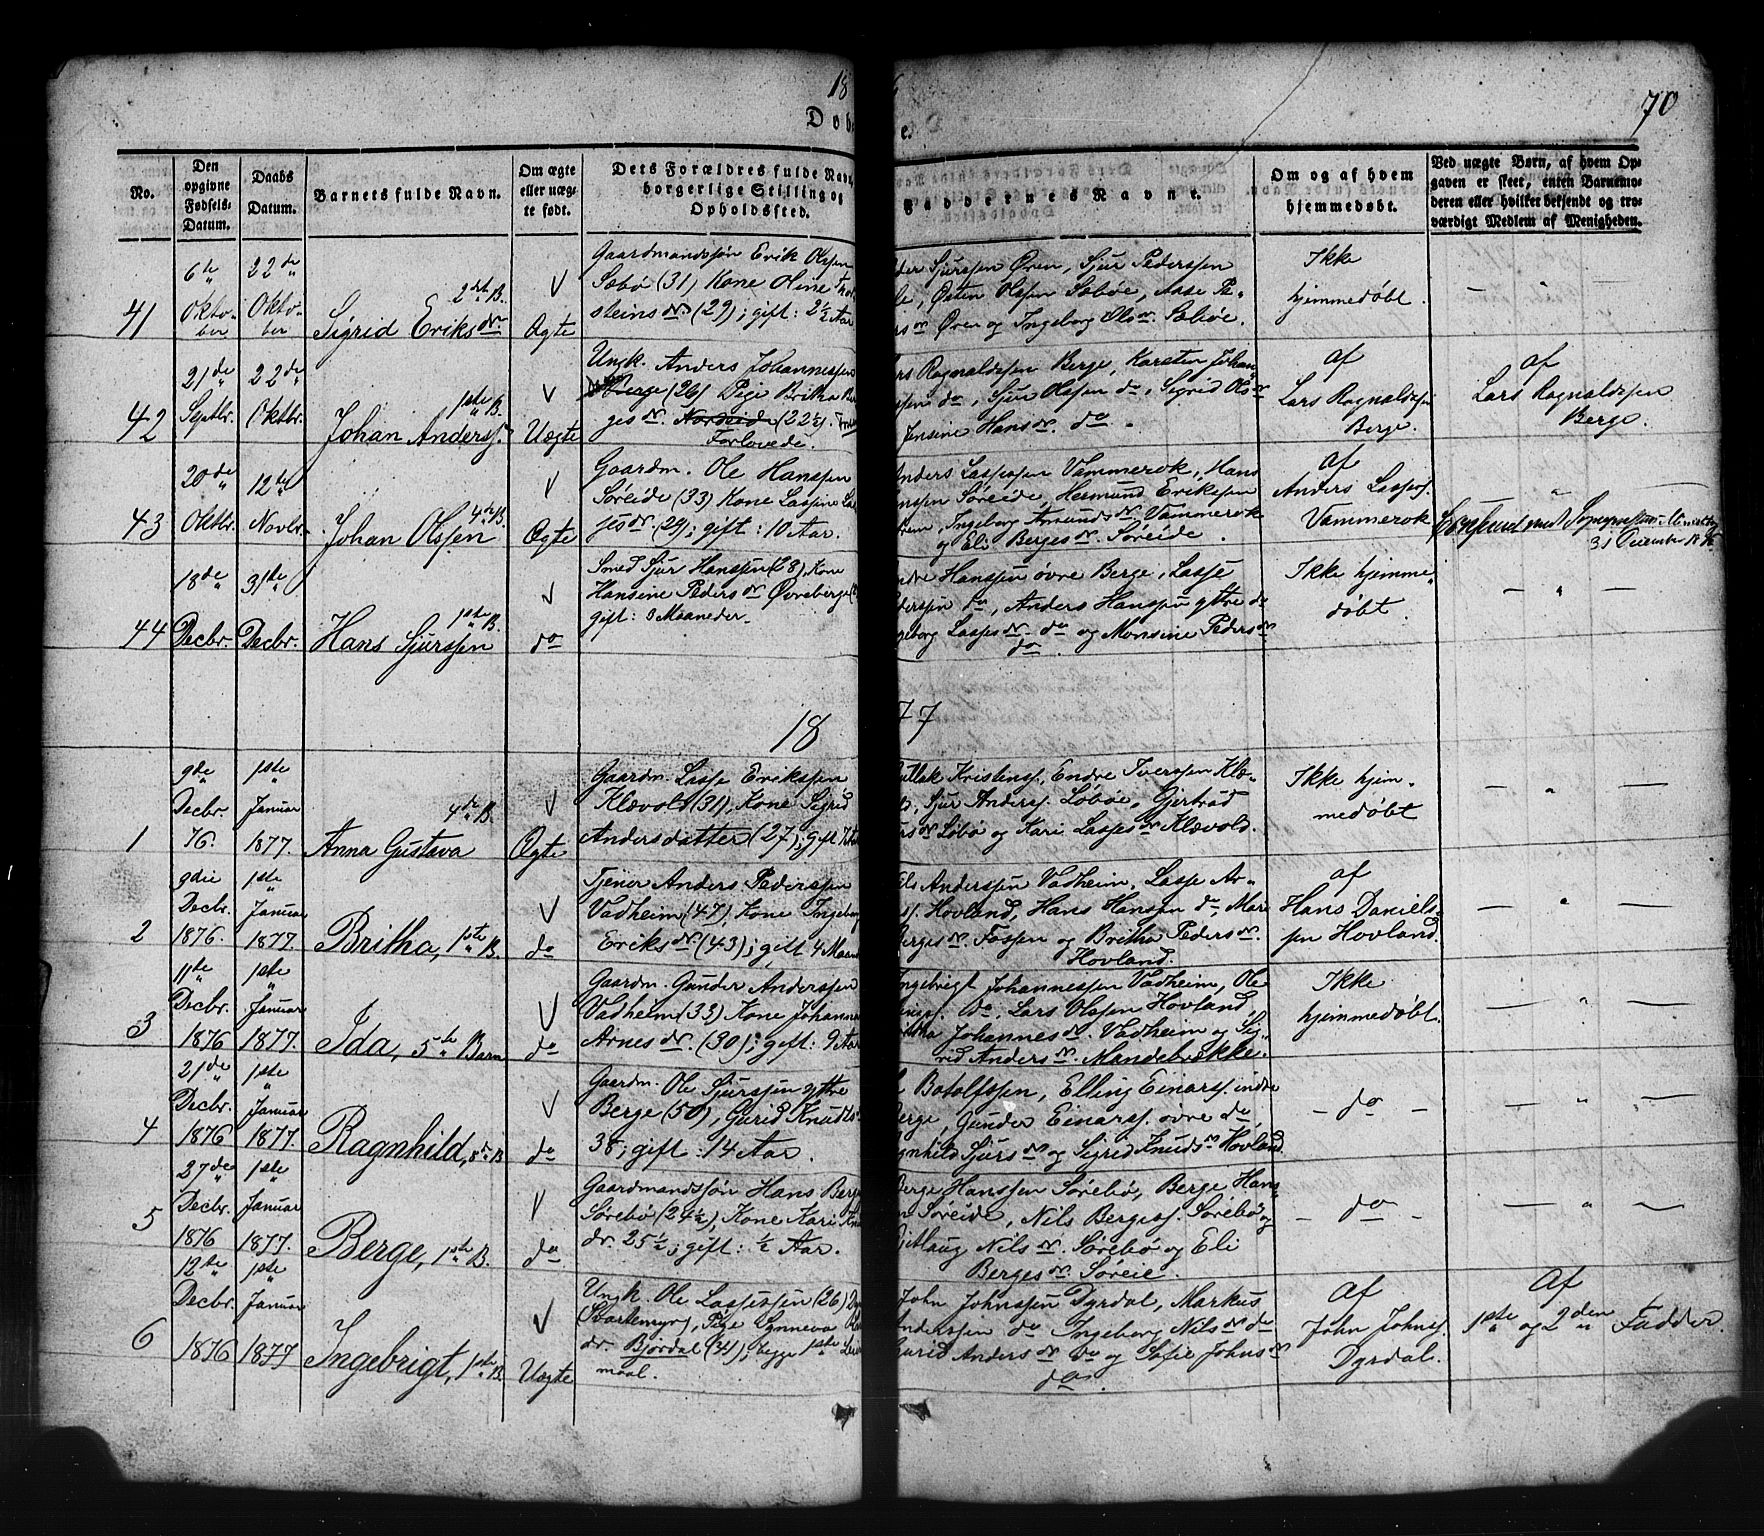 18
70
Døb
e.
No.
Den opgivne Fødsels-Datum.
Daabs Datum.
Barnets fulde Navn.
Om ægte eller uæg-te født.
Dets Forældres fulde Navn, borgerlige Stilling og Opholdssted.
Faddernes Navne.
Om og af hvem hjemmedøbt.
Ved uægte Børn, af hvem Op-gaven er skeet, enten Barnemo-deren eller hvilket bekjendt og tro-værdigt Medlem af Menigheden.
41
6te Oktober
22de Oktober
Sigrid Eriksdr
2det B.
Ægte
Gaardmandssøn Erik Olssen
Søbø (31) Kone Oline
steinsdr. (29); gift: 2½ Aar
Sjurssen Øren, Sjur Pederssen
Østen Olssen Søbøe, Aase Pe-
Øren og Ingeborg Olsdr. Søbøe.
Ikke
hjemmedøbt.
42
21de Septbr.
22de Oktbr.
Johan Anderss.
1ste B.
Uægte
Ungk. Anders Johannessen
Berge (26) Pige Britha
gesdr. Nordeide (22½)
Forlovede.
Ragnaldssen Berge, Karsten Johan
do, Sjur Olssen do, Sigrid Olsdr
Jensine Hansdr. do.
af
Lars Ragnaldssen
Berge.
af
Lars Ragnaldssen
Berge.
43
20de Oktbr.
12te Novbr.
Johan Olssen
4de B.
Ægte
Gaardm. Ole Hanssen
Søreide (33) Kone Lassine
gesdr (29); gift: 10 Aar.
Anders Lassessen Vammerok, Hans
Søreide, Hermund Erikssen
Ingeborg Amundsdr Vammerok
og Eli Bergesdr. Søreide.
af
Anders Lassess.
Vammerok
44
18de Decbr.
31te Decbr.
Hans Sjurssen
1ste B.
do
Smed Sjur Hanssen (28), Kone
Hansine Pedersdr Øvreberge
gift: 3 Maaneder.
Hanssen øvre Berge, Lasse
do, Anders Hanssen ytre do
Lassesdr. do og Monsine Pedersdr
do.
Ikke hjemme-
døbt.
18
77
1
9de Decbr. 76.
1ste Januar 1877.
Anna Gustava
4de B.
Ægte
Gaardm. Lasse Erikssen
Klævold (31), Kone Sigrid
Andersdatter (27); gift
Kristenss. Endre Iverssen Klæ-
Sjur Anderss. Løbøe, Gjertrud
Løbø og Kari Lassesdr Klævold.
Ikke hjem-
medøbt
2
9die Decbr. 1876.
1ste Januar 1877.
Britha, 1ste B.
do
Tjener Anders Pederssen
Vadheim (47), Kone Ingeborg
Eriksdr (43); gift 4 Maan
Anderssen Vadheim, Lasse Ar-
Hovland, Hans Hanssen do, Mari
Bergesdr. Fossen og Britha Pedersdr.
Hovland.
af
Hans Daniels-
sen Hovland.
3
11te Decbr. 1876
1ste Januar 1877.
Ida, 5te Barn
do
Gaardm. Gunder Anderssen
Vadheim (33) Kone Johanna
Arnesdr. (30); gift: 9 Aar
Ingebrigt Johannessen Vadheim, Ole
do, Lars Olssen Hovland,
Johannesdr. Vadheim og Sig-
rid Andersdr. Mandebrække.
Ikke
hjemmedøbt.
4
21de Decbr. 1876
1ste Januar 1877.
Ragnhild,
do
Gaardm. Ole Sjurssen ytre
Berge (50), Gurid Knuds-
38; gift: 14 Aar.
Botolfssen, Elling Einarss. indre
Berge, Gunder Einarss. øvre do
Sjursdr og Sigrid Knudsdr Hovland.
- do -
5
27de Decbr. 1876
1ste Januar 1877.
Berge, 1ste B.
do
Gaardmandssøn Hans Berge
Sørebø (24½), Kone Kari
dr. 25½; gift: ½ Aar.
Berge Hanssen Sørebø, Berge Hans-
Søreide, Nils Bergess. Sørebø og
Nilsdr. Sørebø og Eli
Bergesdr. Søreie.
- do -
6
12te Decbr. 1876
1ste Januar 1877
Ingebrigt, 1ste B.
Uægte
Ungk. Ole Lassessen (26)
Svartemyr, Pige Synneva
dr. Bjordal (34); begge 1ste
maal.
John Johnssen Dyrdal, Markus
Anderssen do Ingeborg Nilsdr do
Gurid Andersdr do og Sofie Johnsdr
do.
af
John Johnss.
Dyrdal.
Af
1ste og 2den Fadder.